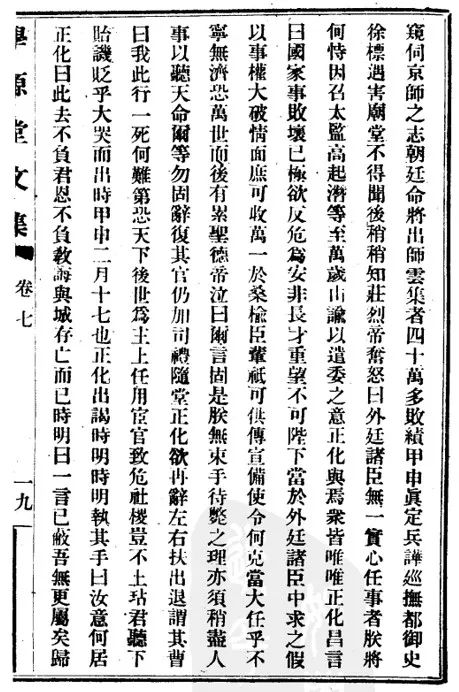 窺伺京師之志朝廷命將出師雲集者四十萬多敗績甲申眞定兵譁巡撫都御史
徐標遇害廟堂不得聞後稍稍知莊烈帝奮怒曰外廷諸臣無一實心任事者朕將
何恃因召太監高起潛等至萬歲山諭以遣委之意正化與焉衆皆唯唯正化昌言
曰國家事敗壞已極欲反危爲安非長才重望不可陛下當於外廷諸臣中求之假
以事權大破情面庶可收萬一於桑楡臣輩祇可供傳宣備使令何克當大任乎不
寧無濟恐萬世而後有累聖德帝泣曰爾言固是朕無束手待斃之理亦須稍盡人
事以聽天命爾等勿固辭復其官仍加司禮隨堂正化欲再辭左右扶出退謂其曹
曰我此行一死何難第恐天下後世爲主上任用宦官致危社稷豈不上玷君聽下
貽譏貶乎大哭而出時甲申二月十七也正化出謁時明時明執其手曰汝意何居
正化曰此去不負君恩不負敎誨與城存亡而已時明曰一言已蔽吾無更屬矣歸
畢原堂文集
卷七
一九